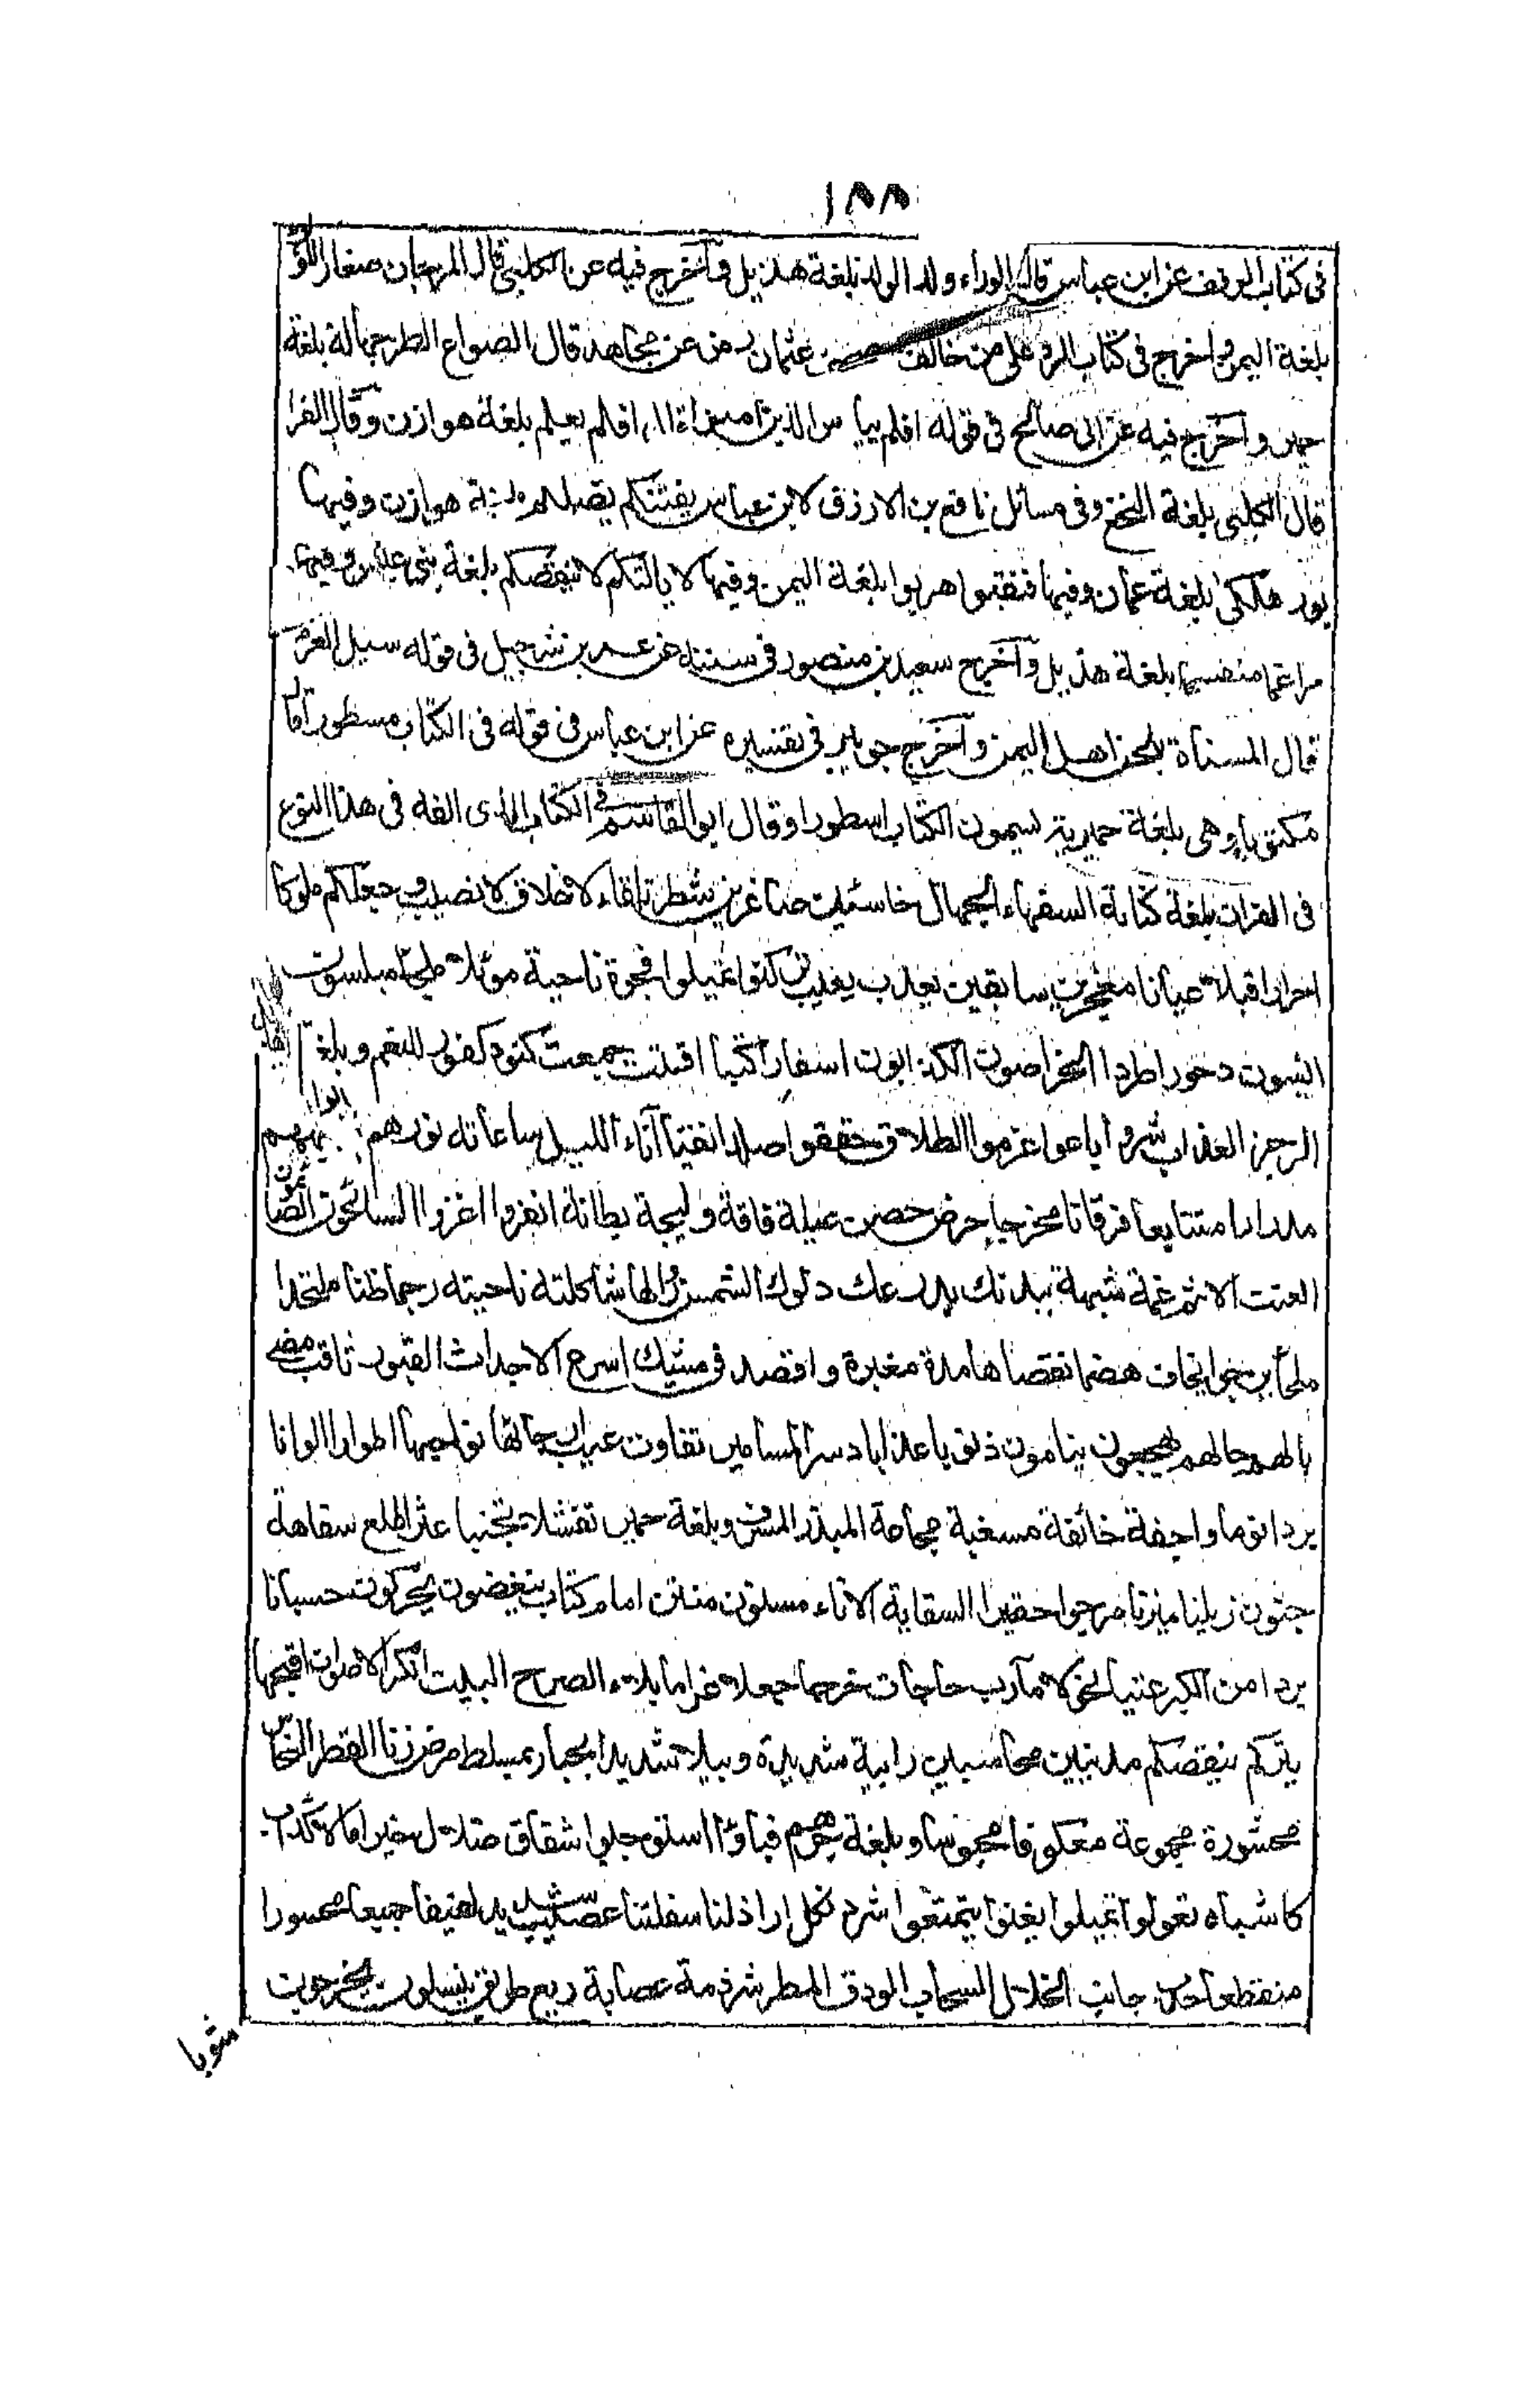 ١٨٨
فى كتاب الوقف عن ابن عباس قال الوراء ولد الولد بلغة هذيل وآخرج فيه عن الكلبى قال المرجان صغار اللؤلؤ
بلغة اليمن واخرج فى كتاب الرد على من خالف عثمان من عن مجاهد قال الصواع الطرجهالة بلغة
حمير وآخرج فيه عن ابى صالح فى قوله افلم ييأس الذين امنوا قال افلم يعلم بلغة هوازن وقال الفرا
قال الكلبى بلغة النخع وفى مسائل نافع بن الازرق لابن عباس يفتنكم يضلكم بلغة هوازن وفيها
بورا هلكى بلغة عمان وفيها فنقبوا هربوا بلغة اليمن وفيها لا يالتكم لا ينقصكم بلغة بنى عبس وفيها
مراغما منفسحا بلغة هذيل وآخرج سعيد بن منصور فى سننه عن عمرو بن شرحبيل فى قوله سيل العرم
قال المسناة بلحن اهل اليمن وآخرج جويبر فى تفسيره عن ابن عباس فى قوله فى الكتاب مسطورا قال
مكتوبا وهى بلغة حميرية يسمون الكتاب اسطورا وقال ابو القاسم فى الكتاب الذى الفه فى هذا النوع
فى القران بلغة كنانة السفهاء الجهال خاسئين صاغرين شطر تلقاء لا خلاق لا نصيب وجعلكم ملوكا
احرارا قبلا عيانا معجزين سابقين يعزب يغيب تركنوا تميلوا فجوة ناحية موئلا ملجأ مبلسون
ايسون دحورا طردا الخراصون الكذابون اسفارا كتبا اقتت جمعت كنود كفور للنعم وبلغة هذيل
الرجز العذاب شروا باعوا عزموا الطلاق حققوا صلدا نقيا آناء الليل ساعاته فورهم وجههم
مدرارا متتابعا فرقانا مخرجا حرض حض عيلة فاقة وليجة بطانة انفروا اغزوا السائحون الصائمون
العنت الاثم غمة شبهة ببدنك بدرعك دلوك الشمس زوالها شاكلته ناحيته رجما ظنا ملتحدا
ملجأ يرجوا يخاف هضما نقصا هامدة مغبرة واقصد فى مشيك اسرع الاجداث القبور ثاقب مضئ
بالهم حالهم يهجعون ينامون ذنوبا عذابا دسر المسامير تفاوت عيب ارجائها نواحيها اطوارا الوانا
بردا نوما واجفة خائفة مسغبة مجاعة المبذر المسرف وبلغة حمير تفشلا تجبنا عثر اطلع سفاهة
جنون زيلنا ميزنا مرجوا حقيرا السقاية الاناء مسنون منتن امام كتاب ينغضون يحركون حسبانا
بردا من الكبر عتيا نحولا مآرب حاجات خرجا جعلا غراما بلاء الصرح البيت انكر الاصوات اقبحها
يتركم ينقصكم مدينين محاسبين رابية شديدة وبيلا شديدا بجبار بمسلط مرض زنا القطر النحاس
محشورة مجموعة معكوفا محبوسا وبلغة جرهم فباؤا استوجبوا شقاق ضلال خيرا مالا كدأب
كاشباه تعولوا تميلوا يغنوا يتمتعوا شرد نكل اراذلنا سفلتنا عصيب شديد لفيفا جميعا محسورا
منقطعا حدب جانب الخلال السحاب الودق المطر شرذمة عصابة ريع طريق ينسلون يخرجون
شوبا